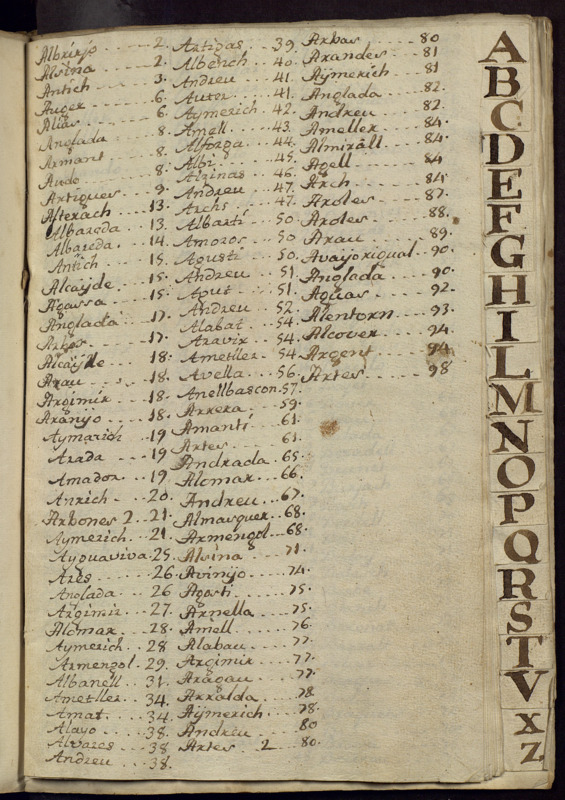 Albrizjo 2.
Alsina 2.
Antich 3.
Auger 6.
Alias 6.
Anglada 8.
Armant 8.
Audo 8.
Artigues 9.
Alterach 13.
Albareda 13.
Albareda 14.
Antich 15.
Alcayde 15.
Agassa 15.
Anglada 17.
17.
Alcayde 18.
Arau 18.
Argimir 18.
Aranyo 18.
Aymarich 19
Arada 19
Amador 19
Anrich 20.
Arbones 2 21.
Aymerich 21.
Ayguaviva 25.
Ares 26.
Anglada 26
Argimir 27.
Alomar 28.
Aymerich 28
Armengol 29.
Albanell 31.
Ametller 34.
Amat 34.
Alayo 38.
Alvares 38
Andreu 38.
Artigas 39.
Alberch 40.
Andreu 41.
Autor 41.
Aymerich 42.
Amell 43.
Alforja 44.
Albi 45.
Alzinas 46.
Andreu 47.
Archs 47.
Albarti 50.
Amoros 50
Agusti 50.
Andreu 51.
Agut 51.
Andreu 52.
Alabat 54.
Aravir 54.
Ametller 54
Avella 56.
Anellbascon 57.
Arrera 59.
Amanti 61.
Artes 61.
Andrada 65.
Alomar 66.
Andreu 67.
Almasquer 68.
Armengol 68.
Alsina 71.
Avinyo 74.
Agosti 75.
Arnella 75.
Amell 76
Alabau 77.
Argimir 77.
Aragau 77.
Arralda 78.
Aymerich 78.
Andreu 80
Artes 2 80.
Arbas 80
Arandes 81
Aymerich 81
Anglada 82.
Andreu 82.
Ameller 84.
Almirall 84.
Agell 84
Arch 84.
Aroles 87.
Aroles 88.
Arau 89.
Avayorigual 90.
Anglada 90.
Aguas 92.
Alentorn 93.
Alcover 94
Argent 94
Artes 98
A
B
C
D
E
F
G
H
I
L
M
N
O
P
Q
R
S
T
V
X
Z